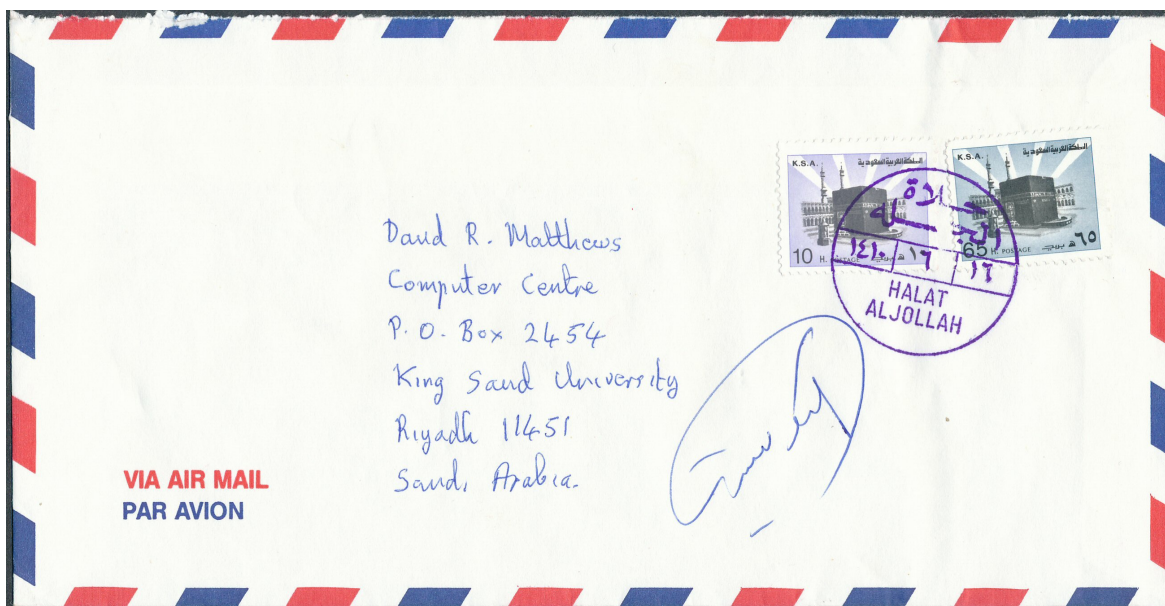 K.S.A.
المملكة العربية السعودية
10 H. POSTAGE ھ بريد
K.S.A.
المملكة العربية السعودية
65 H. POSTAGE ھ بريد ٦٥
١٤١٠
١٦
HALAT
ALJOLLAH
David R. Matthews
Computer Centre
P. O. Box 2454
King Saud University
Riyadh 11451
Saudi Arabia.
VIA AIR MAIL
PAR AVION